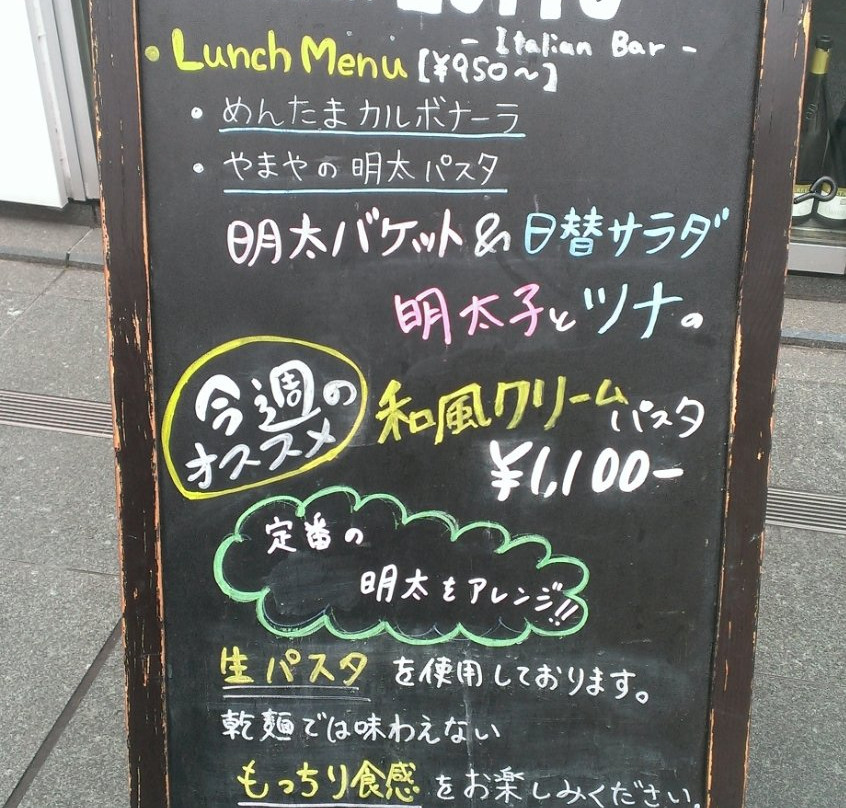 - Italian Bar -
• Lunch Menu [¥950〜]
• めんたまカルボナーラ
• やまやの明太パスタ
明太バケット&日替サラダ
明太子とツナの
今週の
オススメ
和風クリームパスタ
¥1,100-
定番の
明太をアレンジ!!
生パスタを使用しております。
乾麺では味わえない
もっちり食感をお楽しみください。